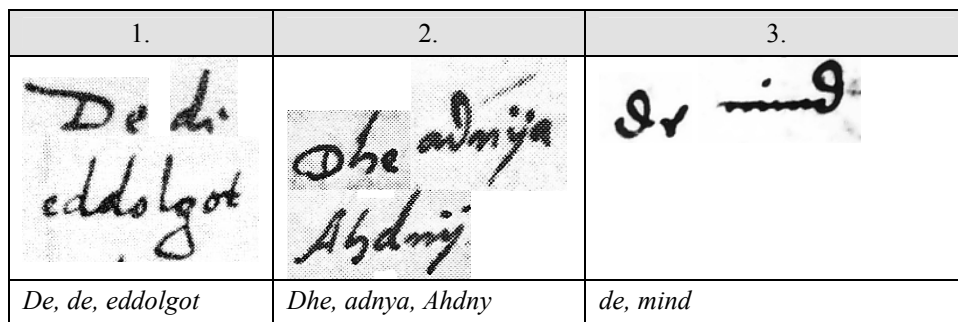 1.
2.
3.
De di
eddolgot
Dhe adnÿa
Ahdnÿ
de mind
De, de, eddolgot
Dhe, adnya, Ahdny
de, mind